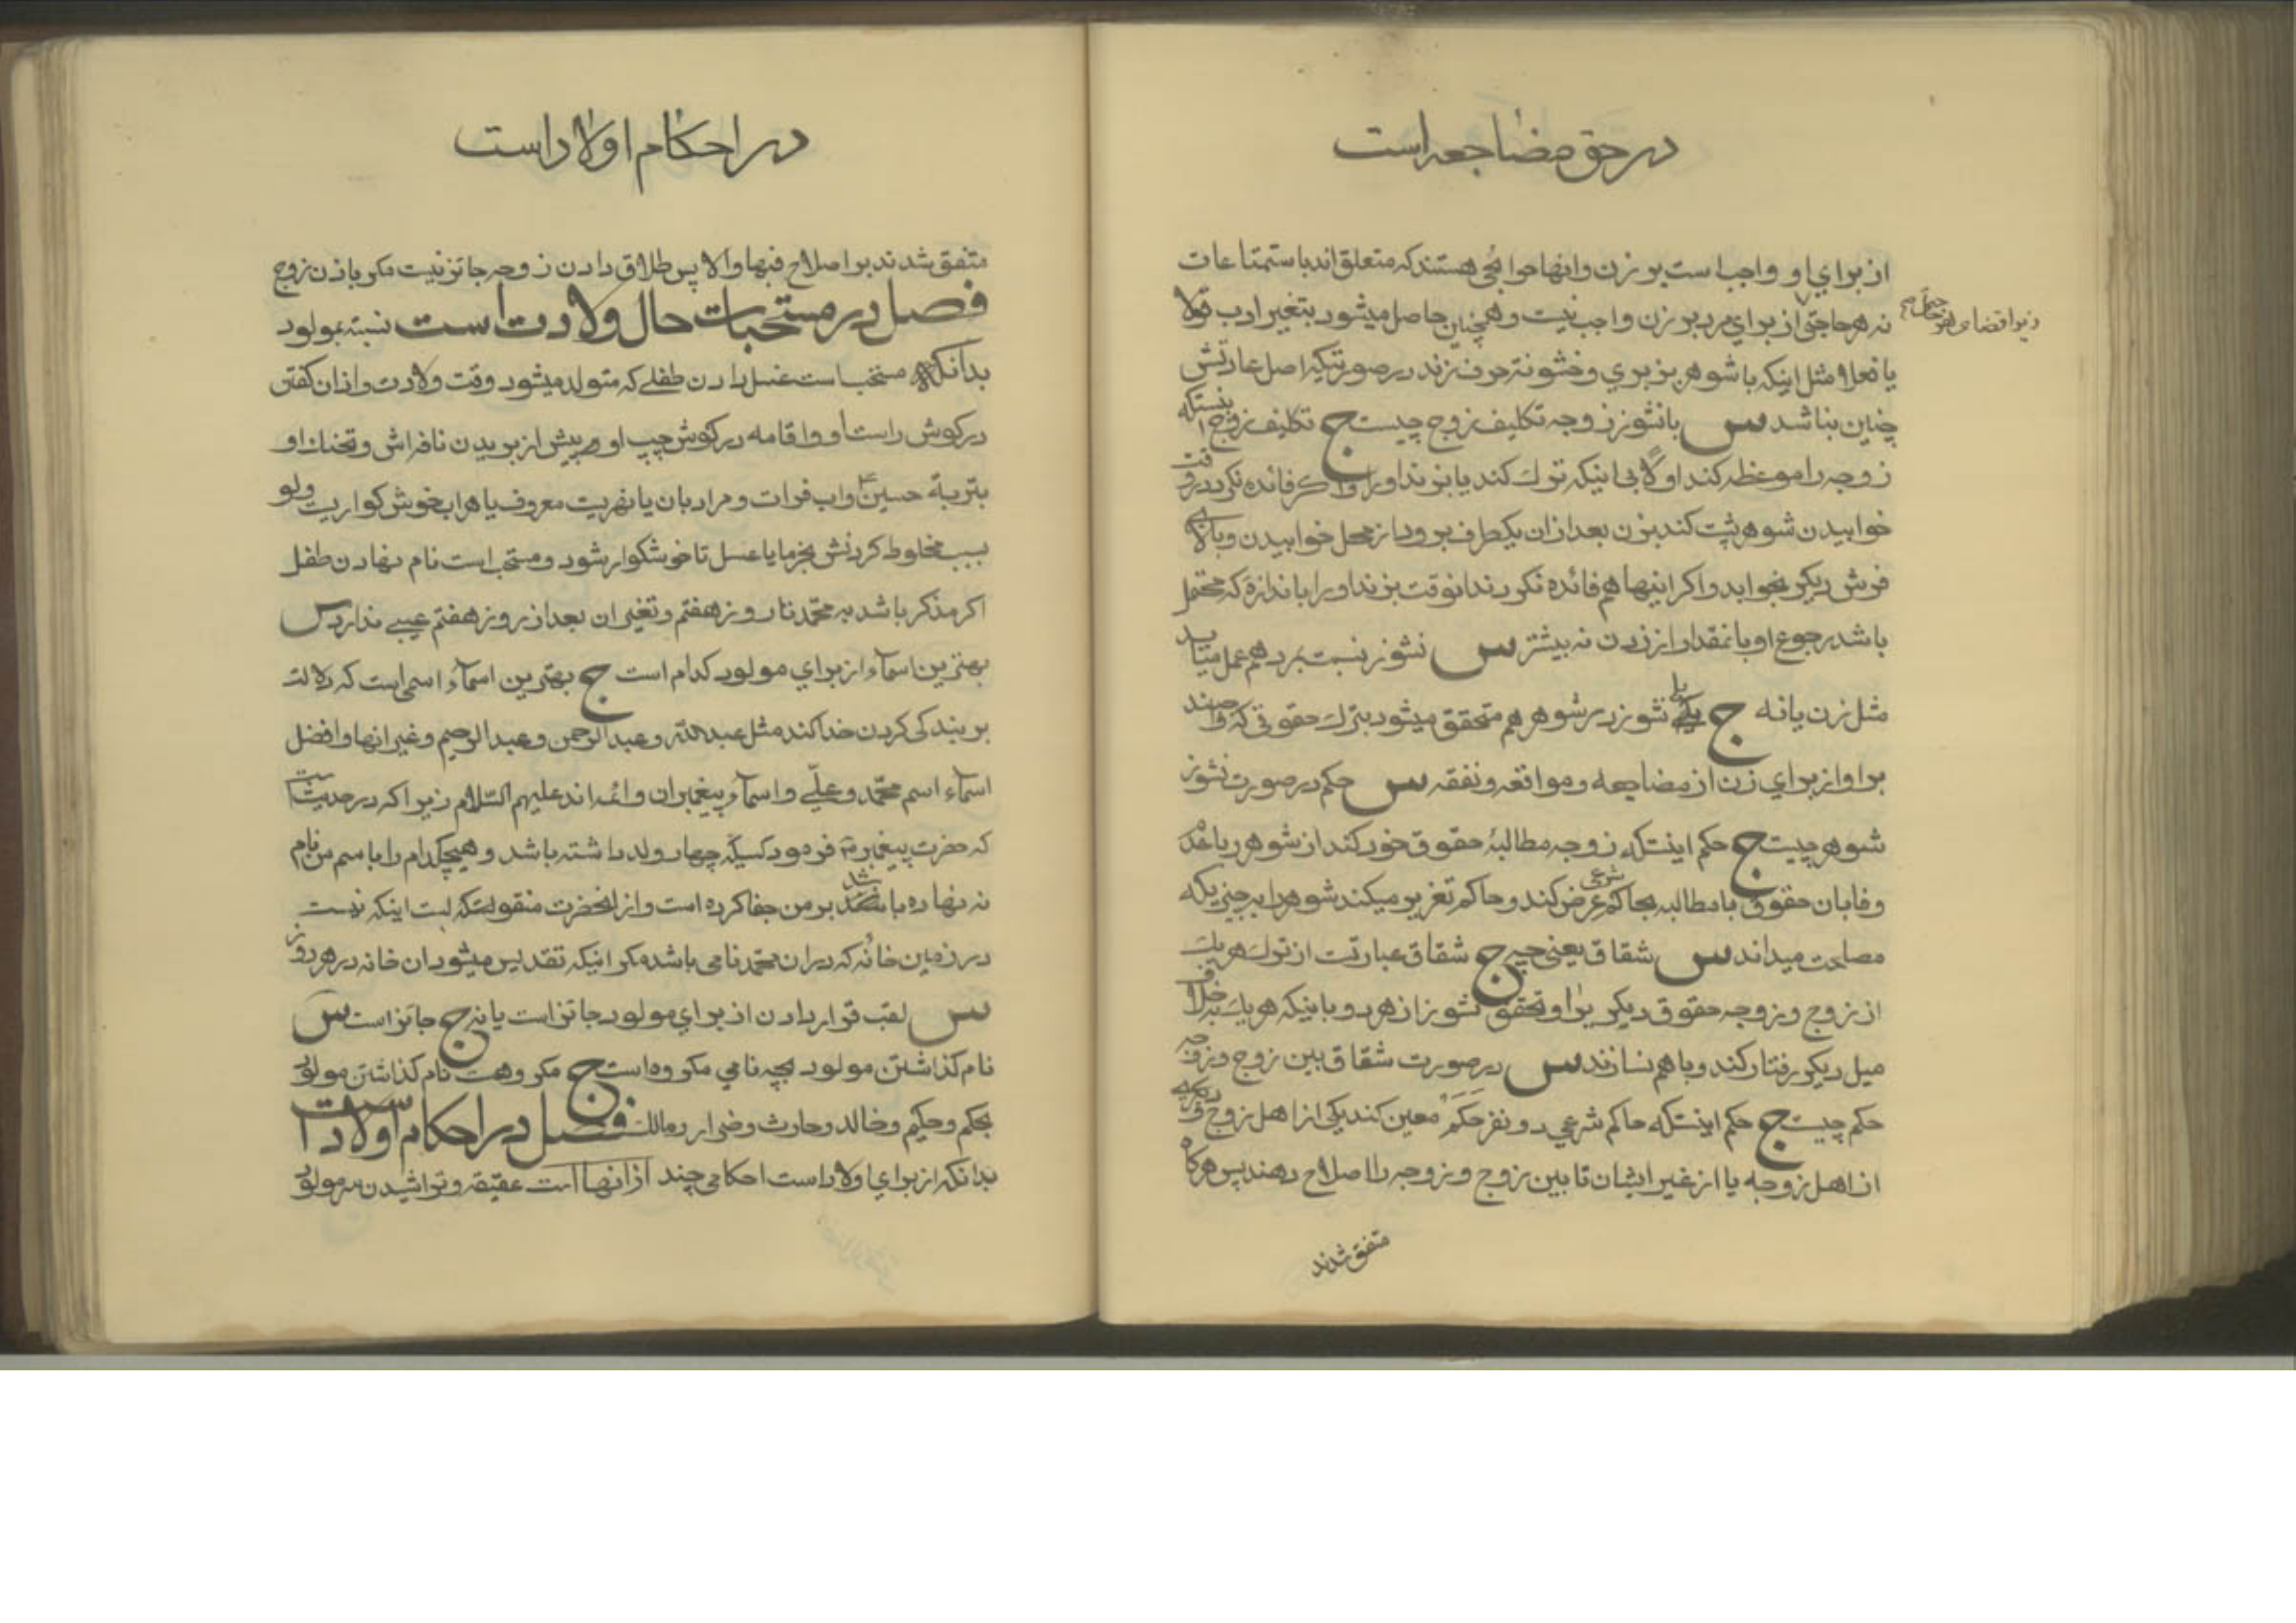 در حق مضاجعه است
از برای او واجب است بر زن و اینها حوائجی هستند که متعلق اند باستمتاعات
نه هر حاجتی از برای مرد بر زن واجب نیست و همچنین حاصل میشود بتغییر ادب قولا
یا فعلا مثل اینکه با شوهر بزبری و خشونة حرف زند در صورتیکه اصل عادتش
چنین نباشد س با نشوز زوجه تکلیف زوج چیست ج تکلیف زوج اینستکه
زوجه را موعظه کند اولا بی اینکه ترك کند یا بزند او را و اگر فائده نکرد در وقت
خوابیدن شوهر پشت کند بزن بعد از ان یکطرف برود از محل خوابیدن و بالای
فرش دیکر بخوابد و اکر اینها هم فائده نکرد ندانوقت بزند او را باندازه که محتمل
باشد رجوع او بانمقدار از زدن نه بیشتر س نشوز نسبت بمرد هم بعمل میاید
مثل زن یا نه ج بلی نشوز در شوهر هم متحقق میشود بترك حقوقی که واجبند
بر او از برای زن از مضاجعه و مواقعه و نفقه س حکم در صورت نشوز
شوهر چیست ج حکم اینستکه زوجه مطالبهٔ حقوق خود کند از شوهر با عدم
وفا بان حقوق با مطالبه بحاکم شرعی عرض کند و حاکم تعزیر میکند شوهر را بچیزیکه
مصلحت میداند س شقاق یعنی چه ج شقاق عبارتست از ترك هر یك
از زوج و زوجه حقوق دیکر یرا و تحقق نشوز از هر دو باینکه هر یك بخلاف
میل دیکر رفتار کند و با هم نسازند س در صورت شقاق بین زوج و زوجه
حکم چیست ج حکم اینستکه حاکم شرعی دو نفر حکم معین کند یکی از اهل زوج و دیکری
از اهل زوجه یا از غیر ایشان تا بین زوج و زوجه را اصلاح دهند پس هرکاه
متفق شدند
در احکام اولاد است
متفق شدند بر اصلاح فبها و الا پس طلاق دادن زوجه جائز نیست مکر باذن زوج
فصل در مستحبات حال ولادت است نسبة بمولود
بدانکه مستحب است غسل دادن طفلی که متولد میشود وقت ولادت و اذان کفتن
در کوش راست او و اقامه در کوش چپ او پیش از بریدن نافراش و تحنك او
بتربة حسین ع و اب فرات و مراد بان یا نهریست معروف یا هر اب خوش کواریست ولو
بسبب مخلوط کردنش بخرما یا عسل تا خوشکوار شود و مستحب است نام نهادن طفل
اکر مذکر باشد به محمد تا روز هفتم و تغییر ان بعد از روز هفتم عیبی ندارد س
بهترین اسماء از برای مولود کدام است ج بهترین اسماء اسمی است که دلالت
بر بندکی کردن خدا کند مثل عبدالله و عبدالرحمن و عبدالرحیم و غیر انها و افضل
اسماء اسم محمد و علی و اسماء پیغمبران و ائمه اند علیهم السلام زیرا که در حدیث است
که حضرت پیغمبر ص فرمود کسیکه چهار ولد داشته باشد و هیچکدام را باسم من نام
نه نهاده باشد بر من جفا کرده است و از انحضرت منقولستکه اینکه نیست
در زمین خانه که در ان محمد نامی باشد مکر اینکه تقدیس میشود ان خانه در هر روز
س لقب قرار دادن از برای مولود جائز است یا نه ج جائز است س
نام کذاشتن مولود بچه نامی مکروه است ج مکروهست نام کذاشتن مولود
بحکم و حکیم و خالد و حارث و ضرار و مالك فصل در احکام اولاد است
بدانکه از برای اولاد است احکامی چند از انها است عقیقه و تراشیدن سر مولود